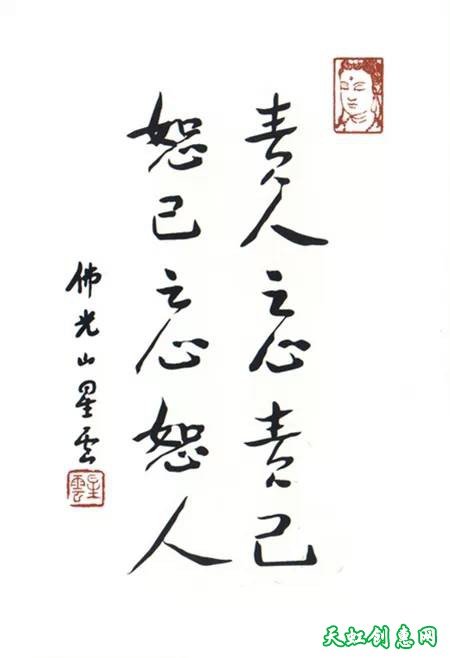 责人之心责己
恕己之心恕人
佛光山星雲
星雲
天虹创意网